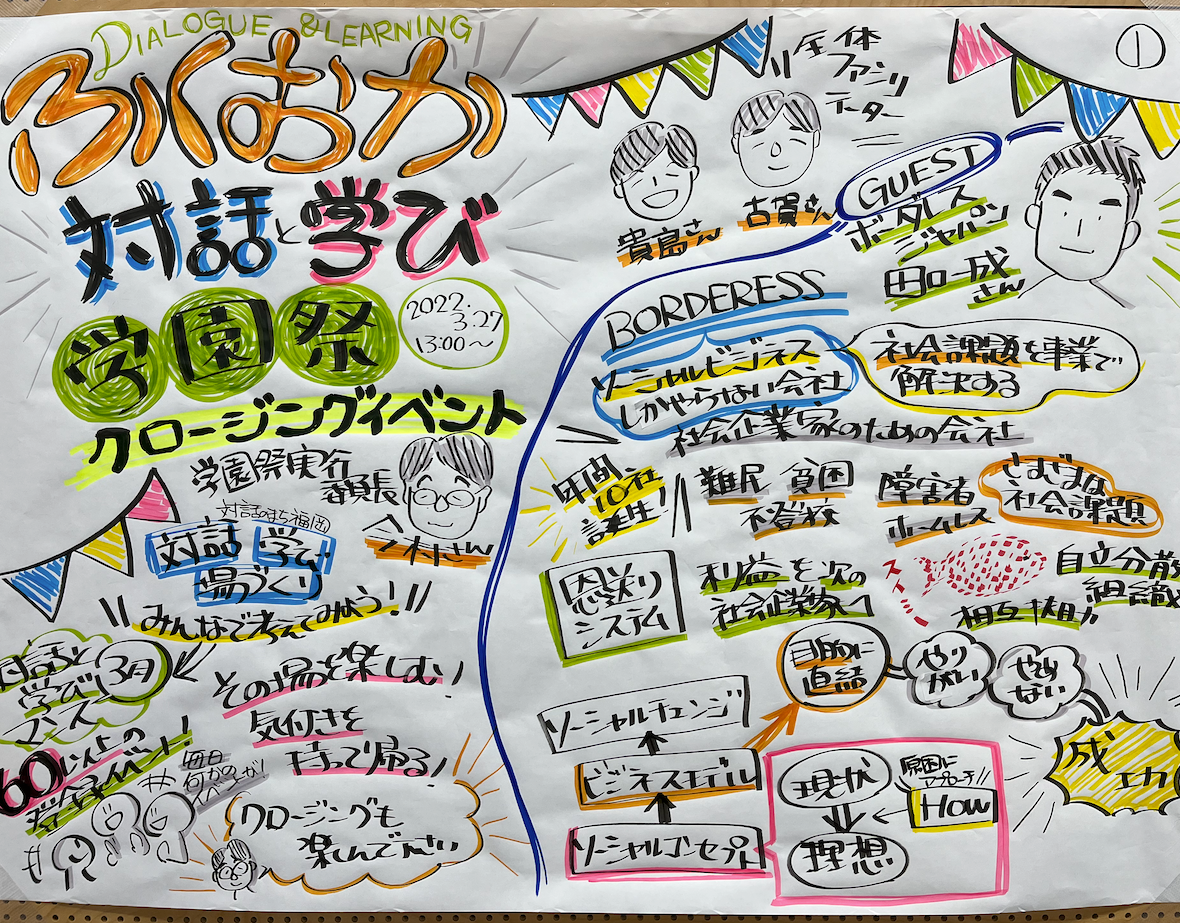 DIALOGUE & LEARNING
ふくおか
対話と学び
学園祭
2022.
3.27
13:00〜
クロージングイベント
学園祭実行
委員長
対話のまち福岡
今村さん
対話 学び
場づくり
みんなで考えてみよう!!
対話と
学び
マンス
3月
その場を楽しむ!
気付きを
持って帰る!
60以上の
対話イベント!
毎日
何かの
イベントが!
クロージングも
楽しんで下さい
①
全体
ファシリ
テーター
貴島さん
古賀さん
GUEST
ボーダレス
ジャパン
田口一成
さん
BORDERESS
ソーシャルビジネス
しかやらない会社
社会課題を事業で
解決する
社会企業家のための会社
年間
10社
誕生!
難民 貧困
不登校
障害者
ホームレス
さまざまな
社会課題
恩送り
システム
利益を次の
社会企業家へ
スイミー
自立分散
組織
相互扶助!!
目的に
直結
やり
がい
やらされ
ない
成功
ソーシャルチェンジ
ビジネスモデル
ソーシャルコンセプト
現状
原因に
アプローチ!!
How
理想